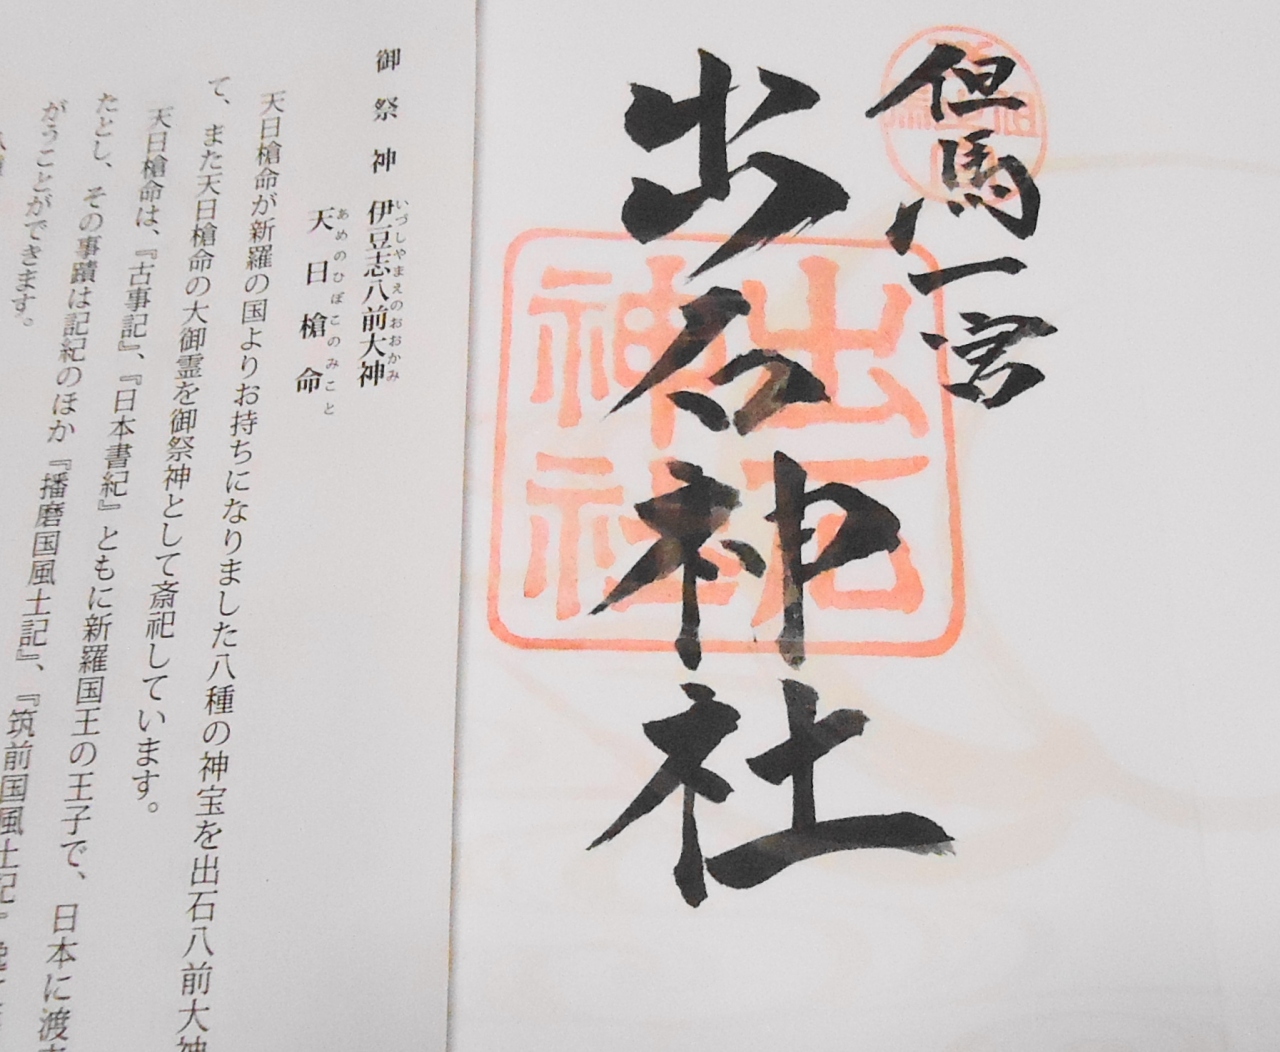 但馬一宮
出石神社
出石
神社
御祭神 伊豆志八前大神
いづしやまえのおおかみ
天日槍命
あめのひぼこのみこと
天日槍命が新羅の国よりお持ちになりました八種の神宝を出石八前大神
て、また天日槍命の大御霊を御祭神として斎祀しています。
天日槍命は、『古事記』、『日本書紀』ともに新羅国王の王子で、日本に渡
たとし、その事蹟は記紀のほか『播磨国風土記』、『筑前国風土記』
がうことができます。